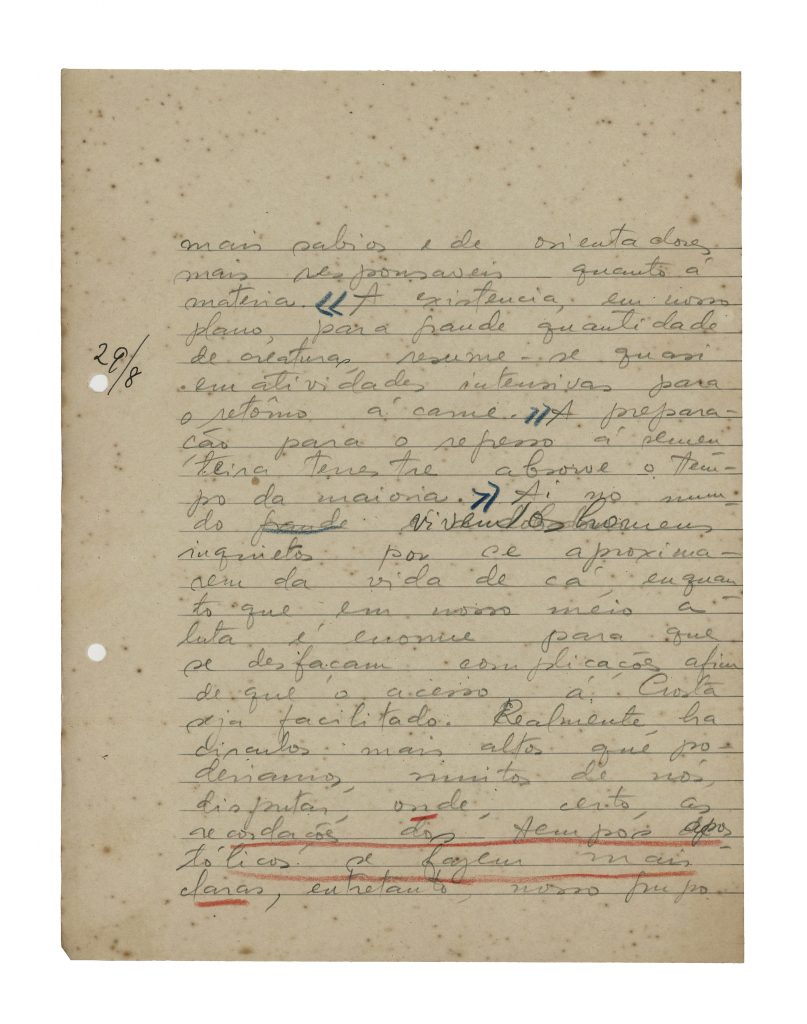 mais sabios e de orientadores
mais responsaveis quanto á
materia. « A existencia, em nosso
plano, para grande quantidade
29/8
de creaturas, resume-se quasi
em atividades intensivas para
o retôrno á carne. » A prepara-
ção para o regresso á semen
teira terrestre absorve o tem-
po da maioria. » Aí no mun-
do grande vivem os homens
inquietos por se aproxima-
rem da vida de cá, enquan
to que em nosso meio a
luta é enorme para que
se desfaçam complicações afim
de que o acesso á Crosta
seja facilitado. Realmente ha
circulos mais altos que po-
deriamos, muitos de nós,
disputar, onde, certo, as
recordações dos tempos apos
tólicos se fazem mais
claras, entretanto, nosso grupo